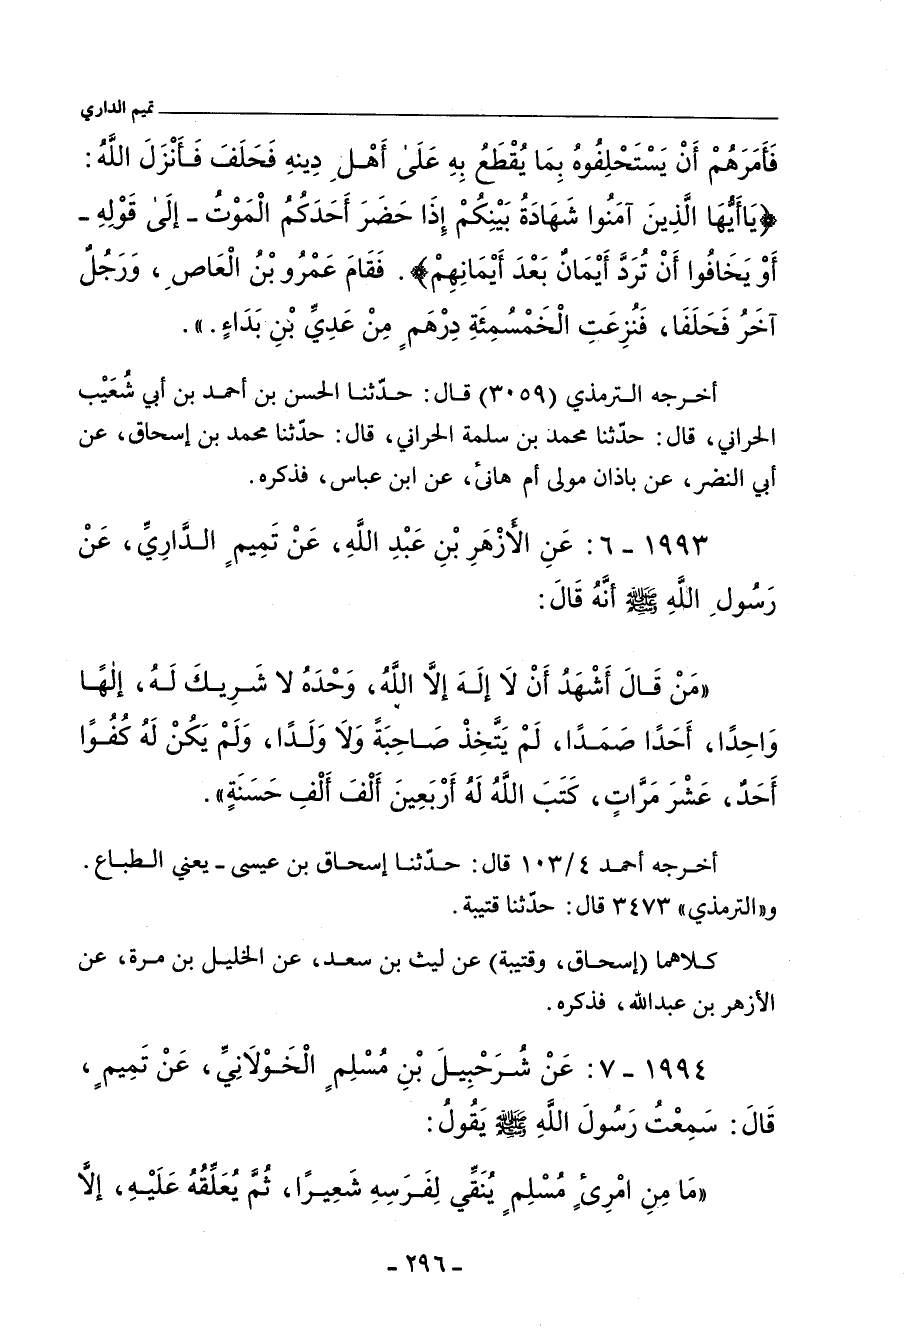 تميم الداري
فَأَمَرَهُمْ أَنْ يَسْتَحْلِفُوهُ بِمَا يُقْطَعُ بِهِ عَلَىٰ أَهْلِ دِينِهِ فَحَلَفَ فَأَنْزَلَ اللَّهُ :
﴿يَاأَيُّهَا الَّذِينَ آمَنُوا شَهَادَةُ بَيْنِكُمْ إِذَا حَضَرَ أَحَدَكُمُ الْمَوْتُ - إِلَىٰ قَوْلِهِ -
أَوْ يَخَافُوا أَنْ تُرَدَّ أَيْمَانٌ بَعْدَ أَيْمَانِهِمْ﴾ . فَقَامَ عَمْرُو بْنُ الْعَاصِ ، وَرَجُلٌ
آخَرُ فَحَلَفَا ، فَنُزِعَتِ الْخَمْسُمِئَةِ دِرْهَمٍ مِنْ عَدِيِّ بْنِ بَدَاءٍ . » .
أخرجه الترمذي (٣٠٥٩) قال : حدّثنا الحسن بن أحمد بن أبي شُعَيْب
الحراني ، قال : حدّثنا محمد بن سلمة الحراني ، قال : حدّثنا محمد بن إسحاق ، عن
أبي النضر ، عن باذان مولى أم هانئ ، عن ابن عباس ، فذكره .
١٩٩٣ - ٦ : عَنِ الْأَزْهَرِ بْنِ عَبْدِ اللَّهِ ، عَنْ تَمِيمٍ الدَّارِيِّ ، عَنْ
رَسُولِ اللَّهِ ﷺ أَنَّهُ قَالَ :
«مَنْ قَالَ أَشْهَدُ أَنْ لَا إِلَهَ إِلَّا اللَّهُ ، وَحْدَهُ لا شَرِيكَ لَهُ ، إِلٰهًا
وَاحِدًا ، أَحَدًا صَمَدًا ، لَمْ يَتَّخِذْ صَاحِبَةً وَلَا وَلَدًا ، وَلَمْ يَكُنْ لَهُ كُفُوًا
أَحَدٌ ، عَشْرَ مَرَّاتٍ ، كَتَبَ اللَّهُ لَهُ أَرْبَعِينَ أَلْفَ أَلْفِ حَسَنَةٍ» .
أخرجه أحمد ١٠٣/٤ قال : حدّثنا إسحاق بن عيسى - يعني الطباع .
و«الترمذي» ٣٤٧٣ قال : حدّثنا قتيبة .
كلاهما (إسحاق ، وقتيبة) عن ليث بن سعد ، عن الخليل بن مرة ، عن
الأزهر بن عبدالله ، فذكره .
١٩٩٤ - ٧ : عَنْ شُرَحْبِيلَ بْنِ مُسْلِمٍ الْخَوْلَانِيِّ ، عَنْ تَمِيمٍ ،
قَالَ : سَمِعْتُ رَسُولَ اللَّهِ ﷺ يَقُولُ :
«مَا مِنِ امْرِئٍ مُسْلِمٍ يُنَقِّي لِفَرَسِهِ شَعِيرًا ، ثُمَّ يُعَلِّقُهُ عَلَيْهِ ، إِلَّا
- ٢٩٦ -